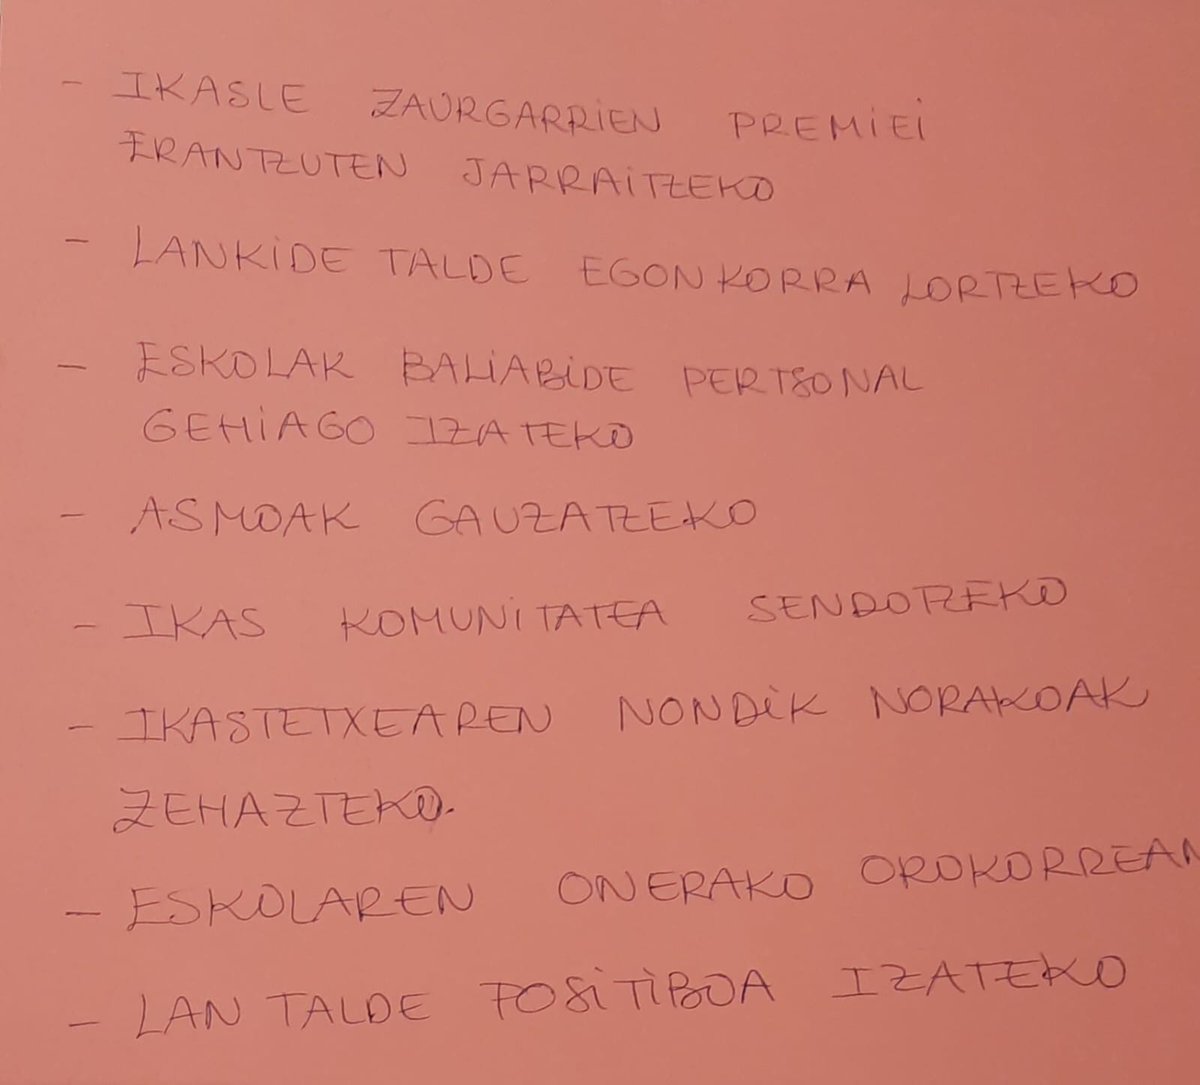 - IKASLE ZAURGARRIEN PREMIEI
ERANTZUTEN JARRAITZEKO
- LANKIDE TALDE EGONKORRA LORTZEKO
- ESKOLAK BALIABIDE PERTSONAL
GEHIAGO IZATEKO
- ASMOAK GAUZATZEKO
- IKAS KOMUNITATEA SENDOTZEKO
- IKASTETXEAREN NONDIK NORAKOAK
ZEHAZTEKO.
- ESKOLAREN ONERAKO OROKORREAN
- LAN TALDE POSITIBOA IZATEKO